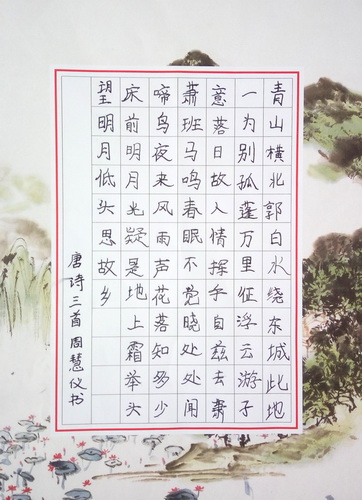 青山横北郭白水绕东城此地
一为别孤蓬万里征浮云游子
意落日故人情挥手自兹去萧
萧班马鸣春眠不觉晓处处闻
啼鸟夜来风雨声花落知多少
床前明月光疑是地上霜举头
望明月低头思故乡
唐诗三首周慧仪书